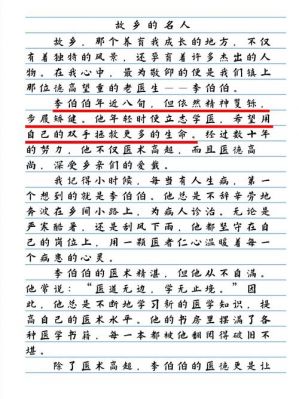 故乡的名人
故乡，那个养育我成长的地方，不仅
有着独特的风景，还孕育着许多杰出的人
物。在我心中，最为敬仰的便是我们镇上
那位德高望重的老医生——李伯伯。
李伯伯年近八旬，但依然精神矍铄，
步履矫健。他年轻时便立志学医，希望用
自己的双手拯救更多的生命。经过数十年
的努力，他不仅医术高超，而且医德高
尚，深受乡亲们的爱戴。
我记得小时候，每当有人生病，第一
个想到的就是李伯伯。他总是不辞辛劳地
奔波在乡间小路上，为病人诊治。无论是
严寒酷暑，还是刮风下雨，他都坚守在自
己的岗位上，用一颗医者仁心温暖着每一
个病患的心灵。
李伯伯的医术精湛，但他从不自满。
他常说：“医道无边，学无止境。”因
此，他总是不断地学习新的医学知识，提
高自己的医术水平。他的书房里摆满了各
种医学书籍，每一本都被他翻阅得破旧不
堪。
除了医术高超，李伯伯的医德更是让